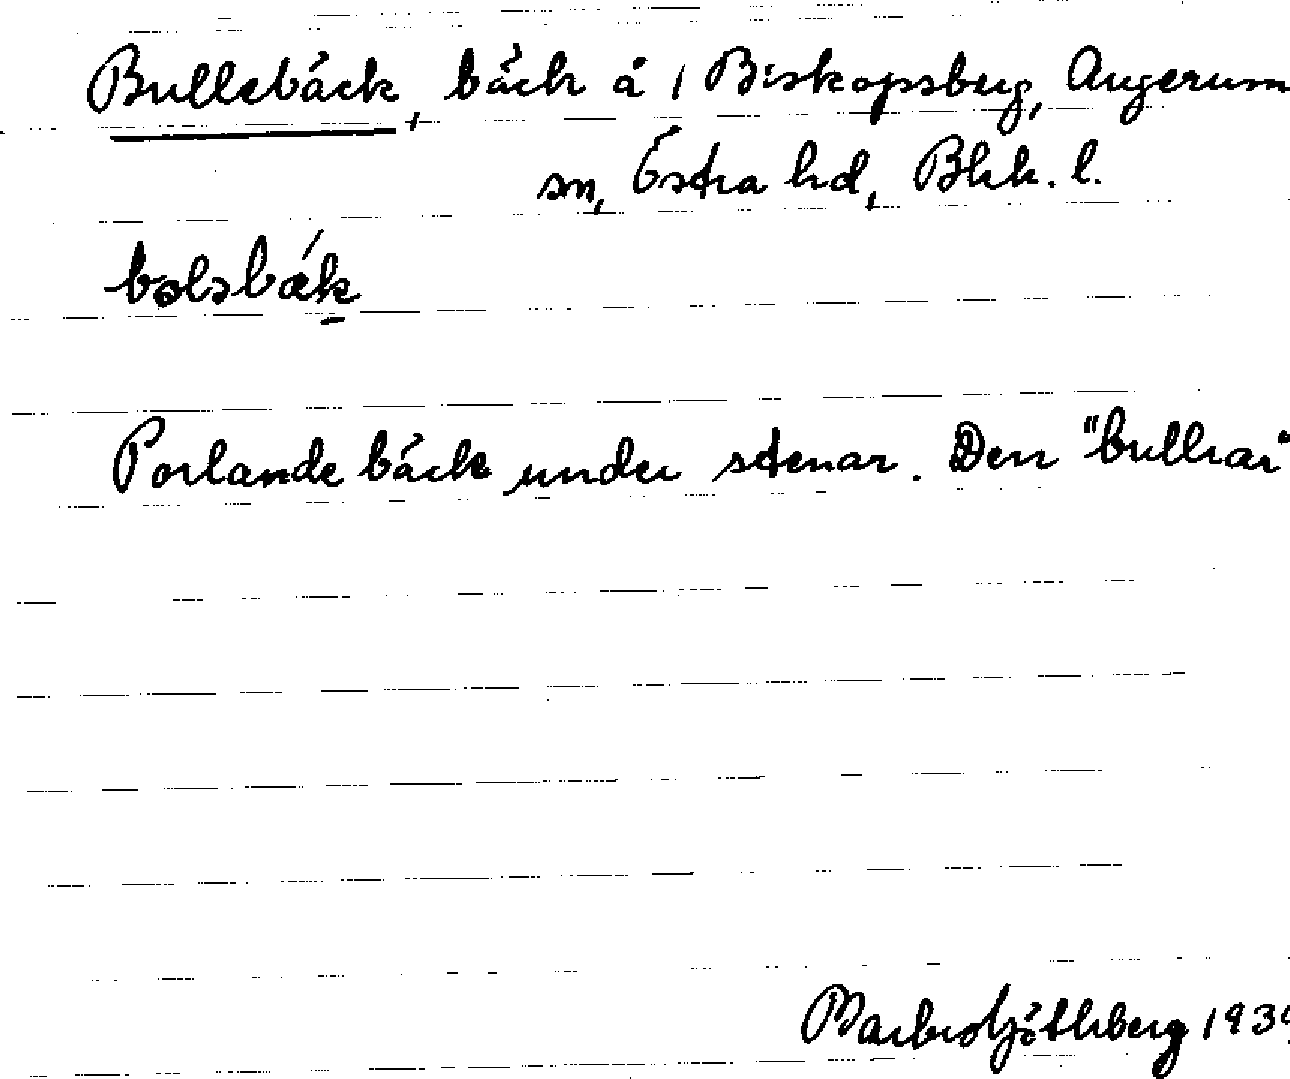 Bullebäck, bäck å 1 Biskopsberg, Augerum
sn, Östra hd, Blek. l.
Porlande bäck under stenar. Den "bullrar"
Barbro Göthberg